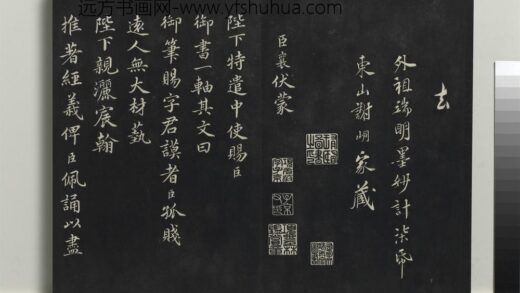 远方书画网-www.yfshuhua.com
去
外祖端明墨妙計柒帋
東山謝
家藏
臣襄伏蒙
陛下特遣中使賜臣
御書一軸其文曰
御筆賜字君謨者臣孤賤
遠人無大材藝
陛下親灑宸翰
推著經義俾臣佩誦以盡